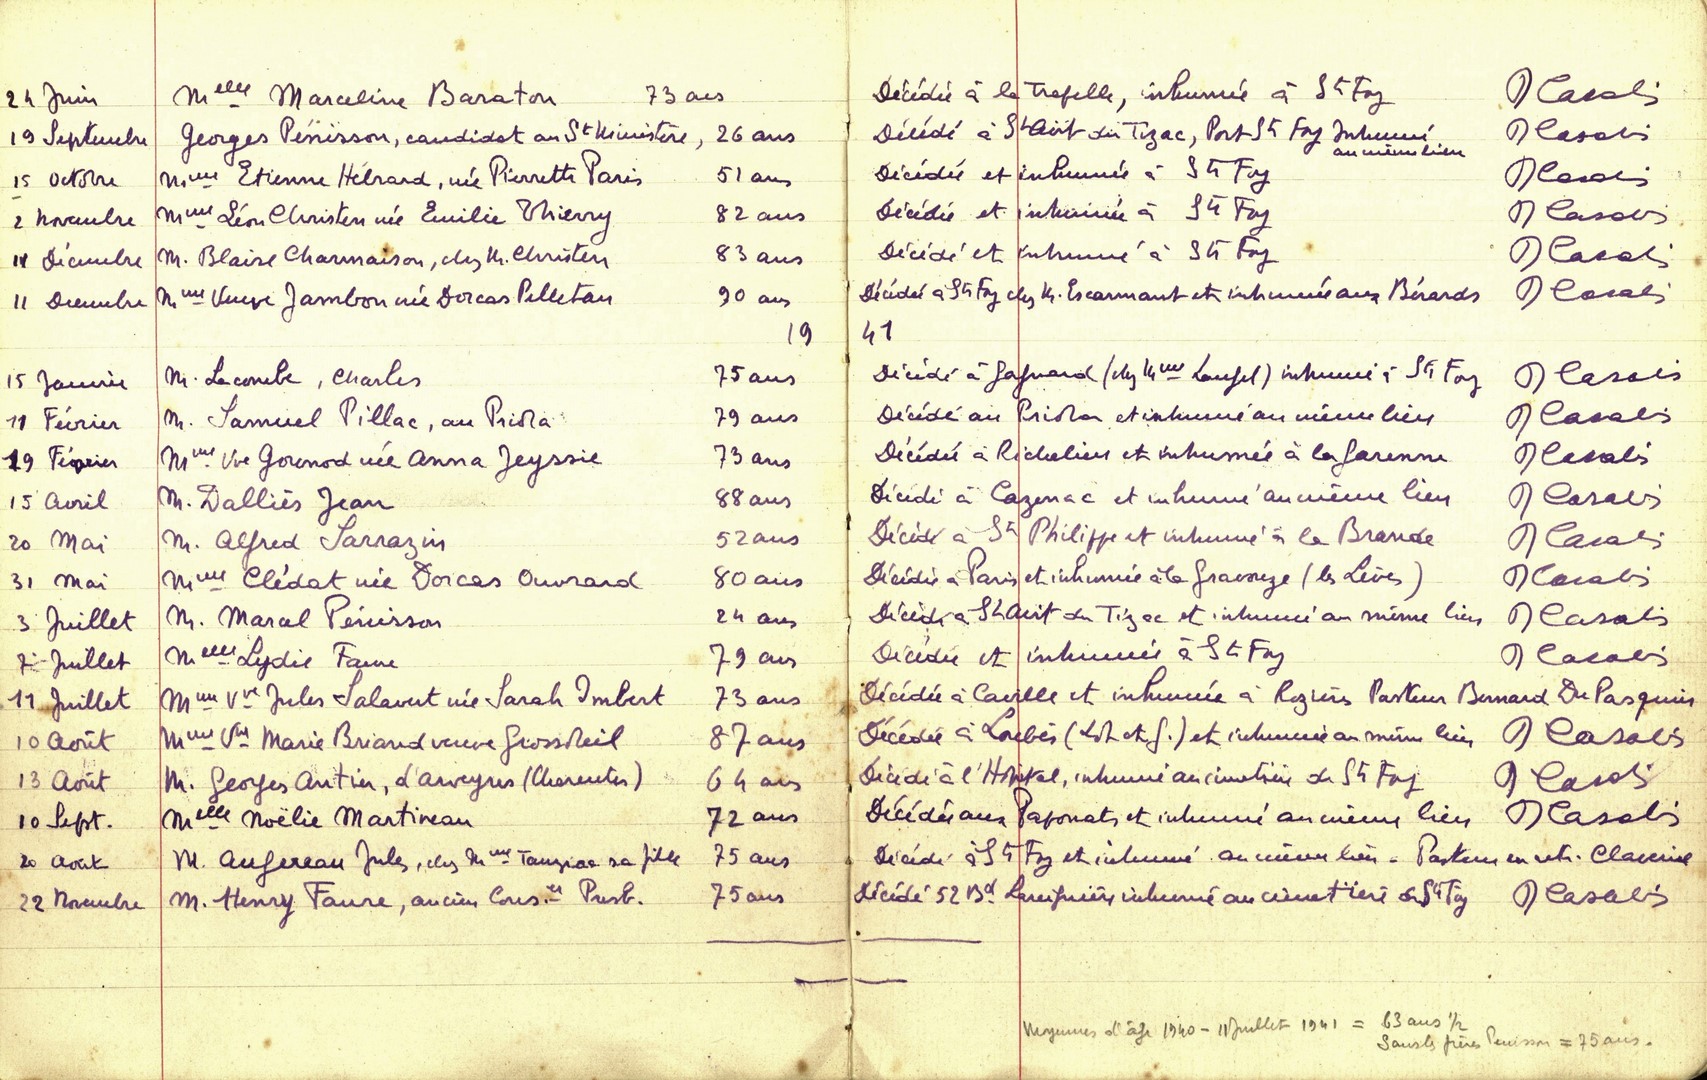 24 Juin Melle Marceline Baraton 73 ans Décédée à la Trapelle, inhumée à Ste Foy Casalis
19 Septembre Georges Pénisson, candidat au St Ministère, 26 ans Décédé à St Avit du Tizac, Port Ste Foy Inhumé
au même lieu Casalis
15 Octobre Mme Etienne Hébrard, née Pierrette Paris 51 ans Décédée et inhumée à Ste Foy Casalis
2 Novembre Mme Léon Christen née Emilie Thierry 82 ans Décédée et inhumée à Ste Foy Casalis
11 Décembre M. Blaise Charmaison, chez M. Christen 83 ans Décédé et inhumé à Ste Foy Casalis
11 Décembre Mme Veuve Jambon née Dorcas Pelletan 90 ans Décédée à Ste Foy chez M. Escarmant et inhumée aux Bérards Casalis
19 41
15 Janvier M. Lacombe, Charles 75 ans Décédé à (chez Mme ) inhumé à Ste Foy Casalis
11 Février M. Samuel Pillac, au Priola 79 ans Décédé au Priola et inhumé au même lieu Casalis
19 Février Mme Vve Gounod née Anna Jeyssie 73 ans Décédée à Richelieu et inhumée à la Garenne Casalis
15 Avril M. Dalliès Jean 88 ans Décédé à Cazenac et inhumé au même lieu Casalis
20 Mai M. Alfred Sarrazin 52 ans Décédé à St Philippe et inhumé à la Brande Casalis
31 Mai Mme Clédat née Dorcas Ouvrard 80 ans Décédée à Paris et inhumée à la Gravouze (les Lèves) Casalis
3 Juillet M. Marcel Pénisson 24 ans Décédé à St Avit du Tizac et inhumé au même lieu Casalis
7 Juillet Melle Lydie Faure 79 ans Décédée et inhumée à Ste Foy Casalis
11 Juillet Mme Vve Jules Salavert née Sarah Imbert 73 ans Décédée à et inhumée à Pasteur Bernard Du Pasquier
10 Août Mme Vve Marie Briand veuve Grossoleil 87 ans Décédée à Loubès (Lot et G.) et inhumée au même lieu Casalis
13 Août M. Georges Antier, d'Arveyres (Charentes) 64 ans Décédé à l'Hôpital, inhumé au cimetière de Ste Foy Casalis
10 Sept. Melle Noëlie Martineau 72 ans Décédée aux et inhumé au même lieu Casalis
20 Août M. Augereau Jules, chez Mme sa fille 75 ans Décédé à Ste Foy et inhumé au même lieu - Pasteur en retr.
22 Novembre M. Henry Faure, ancien Cons.er Presb. 75 ans Décédé 52 Bd inhumé au cimetière de Ste Foy Casalis
Moyennes d'âge 1940 - 11 Juillet 1941 = 63 ans 1/2
Sans les frères Penisson = 75 ans.